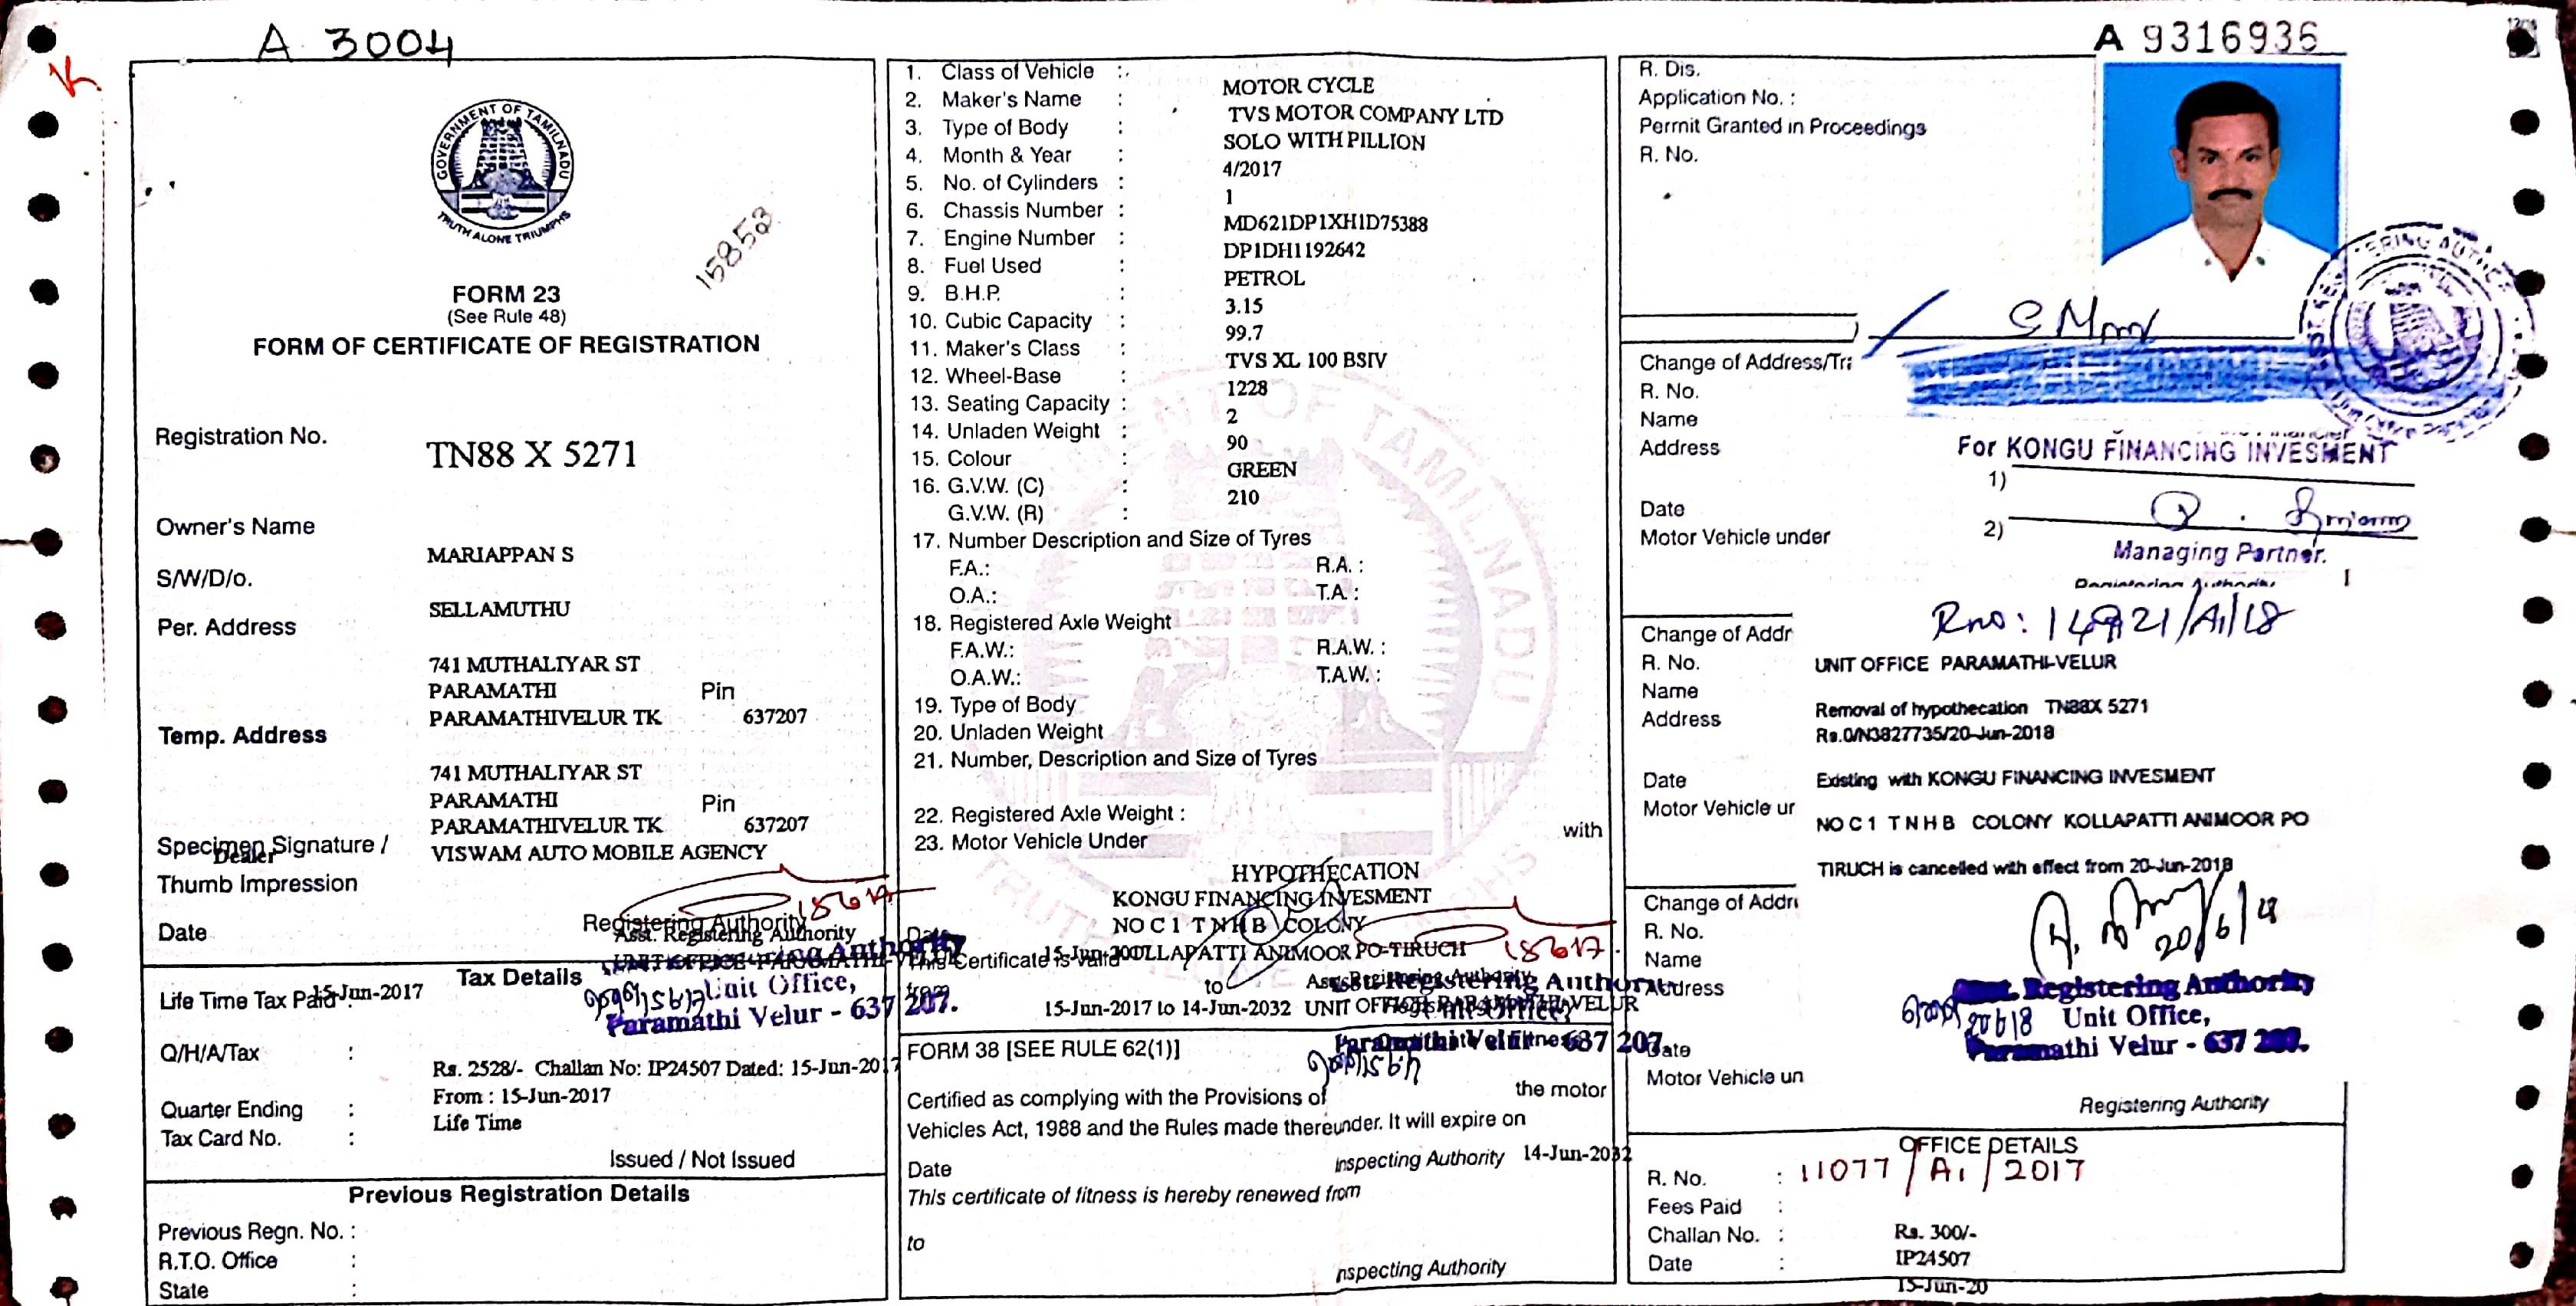 A 3004
GOVERNMENT OF TAMILNADU
TRUTH ALONE TRIUMPHS
15853
FORM 23
(See Rule 48)
FORM OF CERTIFICATE OF REGISTRATION
Registration No.
TN88 X 5271
Owner's Name
MARIAPPAN S
S/W/D/o.
SELLAMUTHU
Per. Address
741 MUTHALIYAR ST
PARAMATHI Pin
PARAMATHIVELUR TK 637207
Temp. Address
741 MUTHALIYAR ST
PARAMATHI Pin
PARAMATHIVELUR TK 637207
Specimen Signature /
Dealer VISWAM AUTO MOBILE AGENCY
Thumb Impression
Registering Authority
Date Asst. Registering Authority
Tax Details
Unit Office,
Paramathi Velur - 637 207.
Life Time Tax Paid : 15-Jun-2017
Q/H/A/Tax :
Rs. 2528/- Challan No: IP24507 Dated: 15-Jun-2017
From : 15-Jun-2017
Quarter Ending :
Life Time
Tax Card No. :
Issued / Not Issued
Previous Registration Details
Previous Regn. No. :
R.T.O. Office :
State :
1. Class of Vehicle : MOTOR CYCLE
2. Maker's Name : TVS MOTOR COMPANY LTD
3. Type of Body : SOLO WITH PILLION
4. Month & Year : 4/2017
5. No. of Cylinders : 1
6. Chassis Number : MD621DP1XH1D75388
7. Engine Number : DP1DH1192642
8. Fuel Used : PETROL
9. B.H.P. : 3.15
10. Cubic Capacity : 99.7
11. Maker's Class : TVS XL 100 BSIV
12. Wheel-Base : 1228
13. Seating Capacity : 2
14. Unladen Weight : 90
15. Colour : GREEN
16. G.V.W. (C) : 210
G.V.W. (R) :
17. Number Description and Size of Tyres
F.A.: R.A. :
O.A.: T.A. :
18. Registered Axle Weight
F.A.W.: R.A.W. :
O.A.W.: T.A.W. :
19. Type of Body
20. Unladen Weight
21. Number, Description and Size of Tyres
22. Registered Axle Weight :
with
23. Motor Vehicle Under
HYPOTHECATION
KONGU FINANCING INVESMENT
NO C 1 T N H B COLONY
KOLLAPATTI ANIMOOR PO-TIRUCH
This Certificate is valid
from
to
15-Jun-2017 to 14-Jun-2032 UNIT OFFICE PARAMATHI-VELUR
Paramathi Velur - 637 207.
FORM 38 [SEE RULE 62(1)]
Certified as complying with the Provisions of the motor
Vehicles Act, 1988 and the Rules made thereunder. It will expire on
Date Inspecting Authority 14-Jun-2032
This certificate of fitness is hereby renewed from
to
nspecting Authority
A 9316936
R. Dis.
Application No. :
Permit Granted in Proceedings
R. No.
Change of Address/Tra
R. No.
Name
Address
For KONGU FINANCING INVESMENT
1)
Date
2)
Motor Vehicle under
Managing Partner.
Registering Authority
Change of Addr
R. No.
UNIT OFFICE PARAMATHI-VELUR
Name
Removal of hypothecation TN88X 5271
Address
Rs.0/N3827735/20-Jun-2018
Date
Existing with KONGU FINANCING INVESMENT
Motor Vehicle ur
NO C 1 T N H B COLONY KOLLAPATTI ANIMOOR PO
TIRUCH is cancelled with effect from 20-Jun-2018
Change of Addr
R. No.
Name
20/6/18
Address
Asst. Registering Authority
Unit Office,
Paramathi Velur - 637 207.
Date
Motor Vehicle un
Registering Authority
OFFICE DETAILS
R. No. : 11077/A1/2017
Fees Paid :
Challan No. : Rs. 300/-
Date : IP24507
15-Jun-20